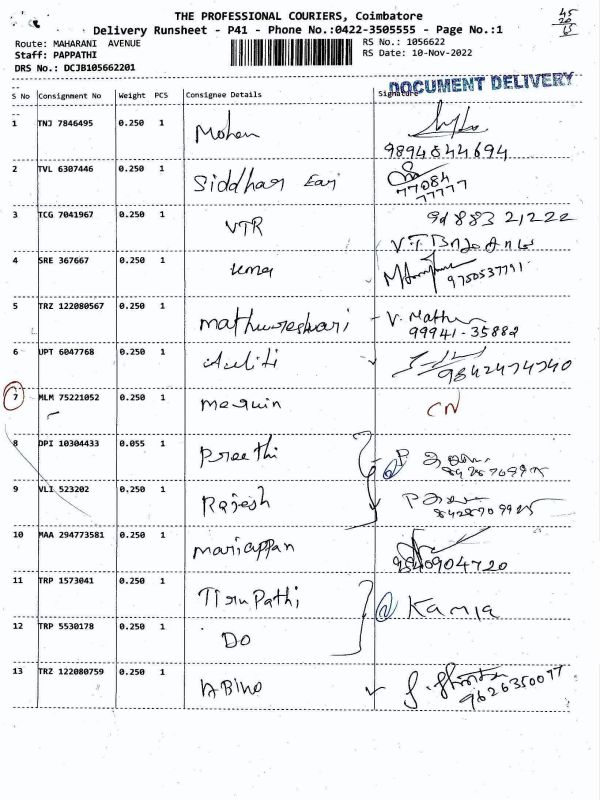 THE PROFESSIONAL COURIERS, Coimbatore
45
20
15
Delivery Runsheet - P41 - Phone No.:0422-3505555 - Page No.:1
Route: MAHARANI AVENUE
RS No.: 1056622
Staff: PAPPATHI
RS Date: 10-Nov-2022
DRS No.: DCJB105662201
DOCUMENT DELIVERY
S No Consignment No Weight PCS Consignee Details Signature
1 TNJ 7846495 0.250 1 Mohan
9894844694
2 TVL 6307446 0.250 1 Siddhar
77084
77777
3 TCG 7041967 0.250 1 VTR
98883 21222
4 SRE 367667 0.250 1 uma
9750537791
5 TRZ 122080567 0.250 1 mathureshwari V. Mathu
99941-35882
6 UPT 6047768 0.250 1
9842474740
7 MLM 75221052 0.250 1 CN
8 DPI 10304433 0.055 1 Preethi
9 VLI 523202 0.250 1 Rajesh
10 MAA 294773581 0.250 1 mariappan
11 TRP 1573041 0.250 1 Tiru Pathi
@ Kamla
12 TRP 5530178 0.250 1 DO
13 TRZ 122080759 0.250 1